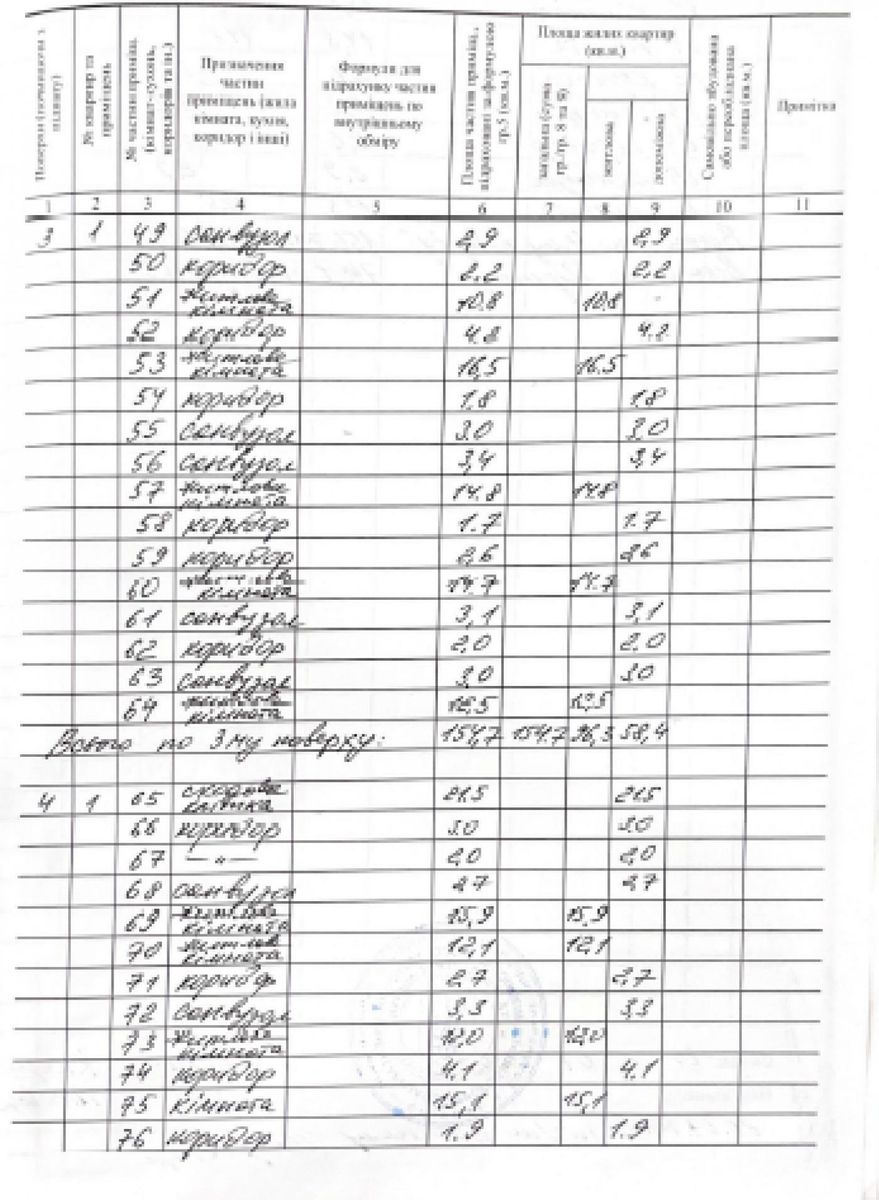 Поверхи (починаючи з підвалу) | № квартир та приміщень | № частин приміщ. (кімнат-кухонь, коридорів та ін.) | Призначення частин приміщень (жила кімната, кухня, коридор і інші) | Формули для підрахунку частин приміщень по внутрішньому обміру | Площа частин приміщ., підрахованні за формулою гр.5 (кв.м.) | Площа жилих квартир (кв.м.) | загальна (сума гр./гр. 8 та 9) | житлова | допоміжна | Самовільно збудована або переобладнана площа (кв.м.) | Примітка
1 2 3 4 5 6 7 8 9 10 11
3 1 49 санвузол 2,9 2,9
50 коридор 2.2 2,2
51 житлова кімната 10.8 10.8
52 коридор 4.8 4.8
53 житлова кімната 16,5 16.5
54 коридор 1.8 1.8
55 санвузол 3,0 3,0
56 санвузол 3,4 3,4
57 житлова кімната 14.8 14.8
58 коридор 1.7 1.7
59 коридор 2,6 2,6
60 житлова кімната 14.7 14.7
61 санвузол 3,1 3,1
62 коридор 2,0 2,0
63 санвузол 3,0 3,0
64 житлова кімната
Всього по 3му поверху: 154,7 154.7 96,3 58,4
4 1 65 сходова клітка 21.5 21.5
66 коридор 3.0 3.0
67 —"— 2,0 2,0
68 санвузол 2.7 2.7
69 житлова кімната 15,9 15,9
70 житлова кімната 12,1 12,1
71 коридор 2,7 2,7
72 санвузол 3,3 3,3
73 житлова кімната
74 коридор 4.1 4.1
75 кімната 15,1 15,1
76 коридор 1.9 1.9